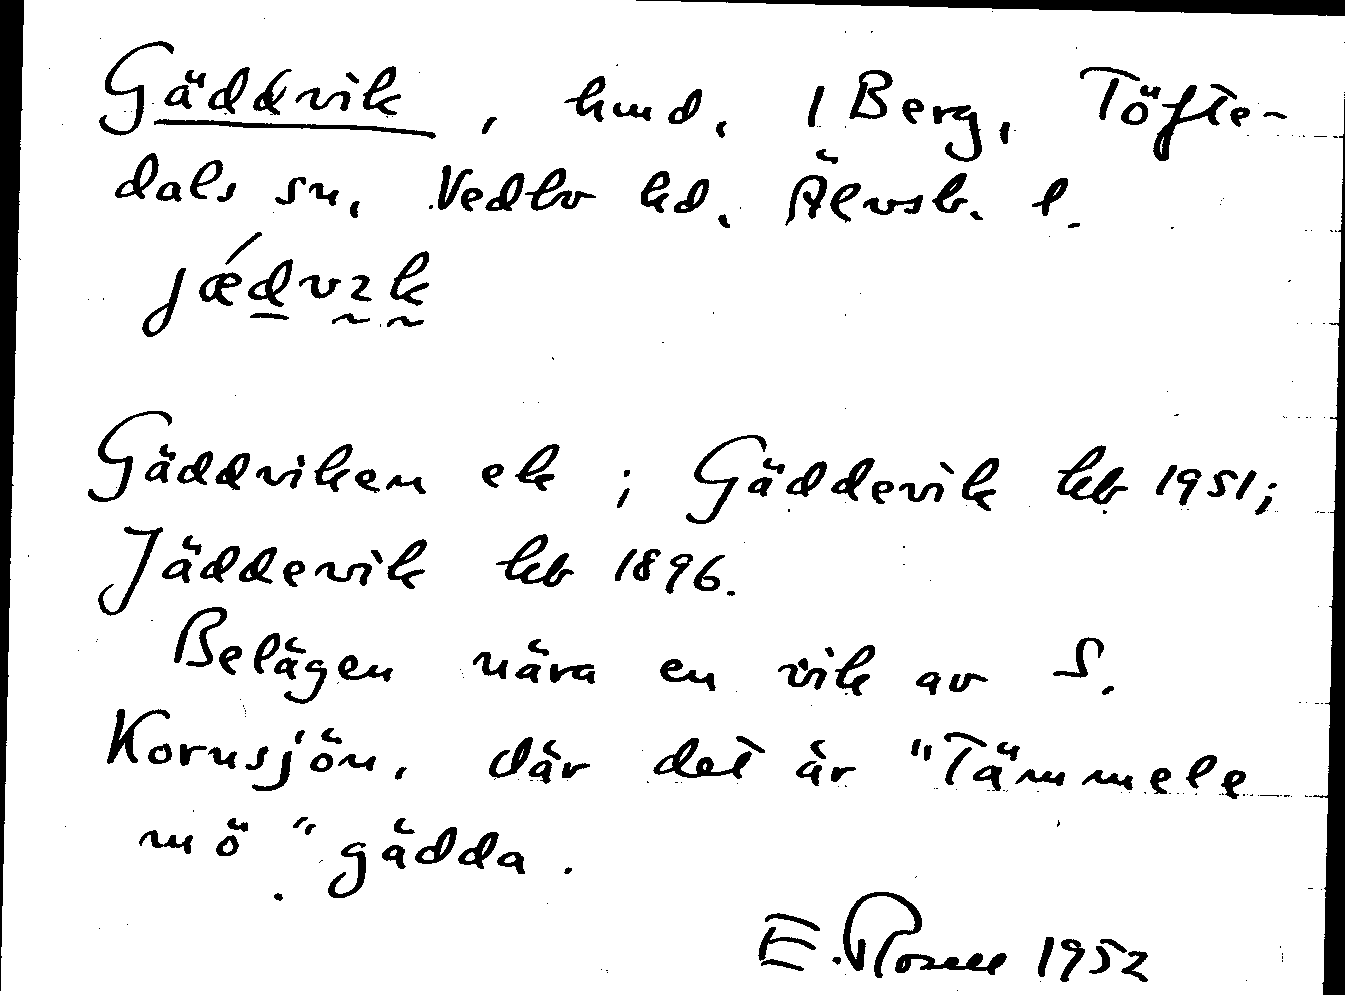 Gäddvik, hmd. 1 Berg, Töfte-
dals sn, Vedbo hd. Älvsb. l.
jǽdvɩk
Gäddviken ek ; Gäddevik kb 1951;
Jäddevik kb 1896.
Belägen nära en vik av S.
Kornsjön, där det är "Tämmele
mö" gädda.
E. Rosell 1952